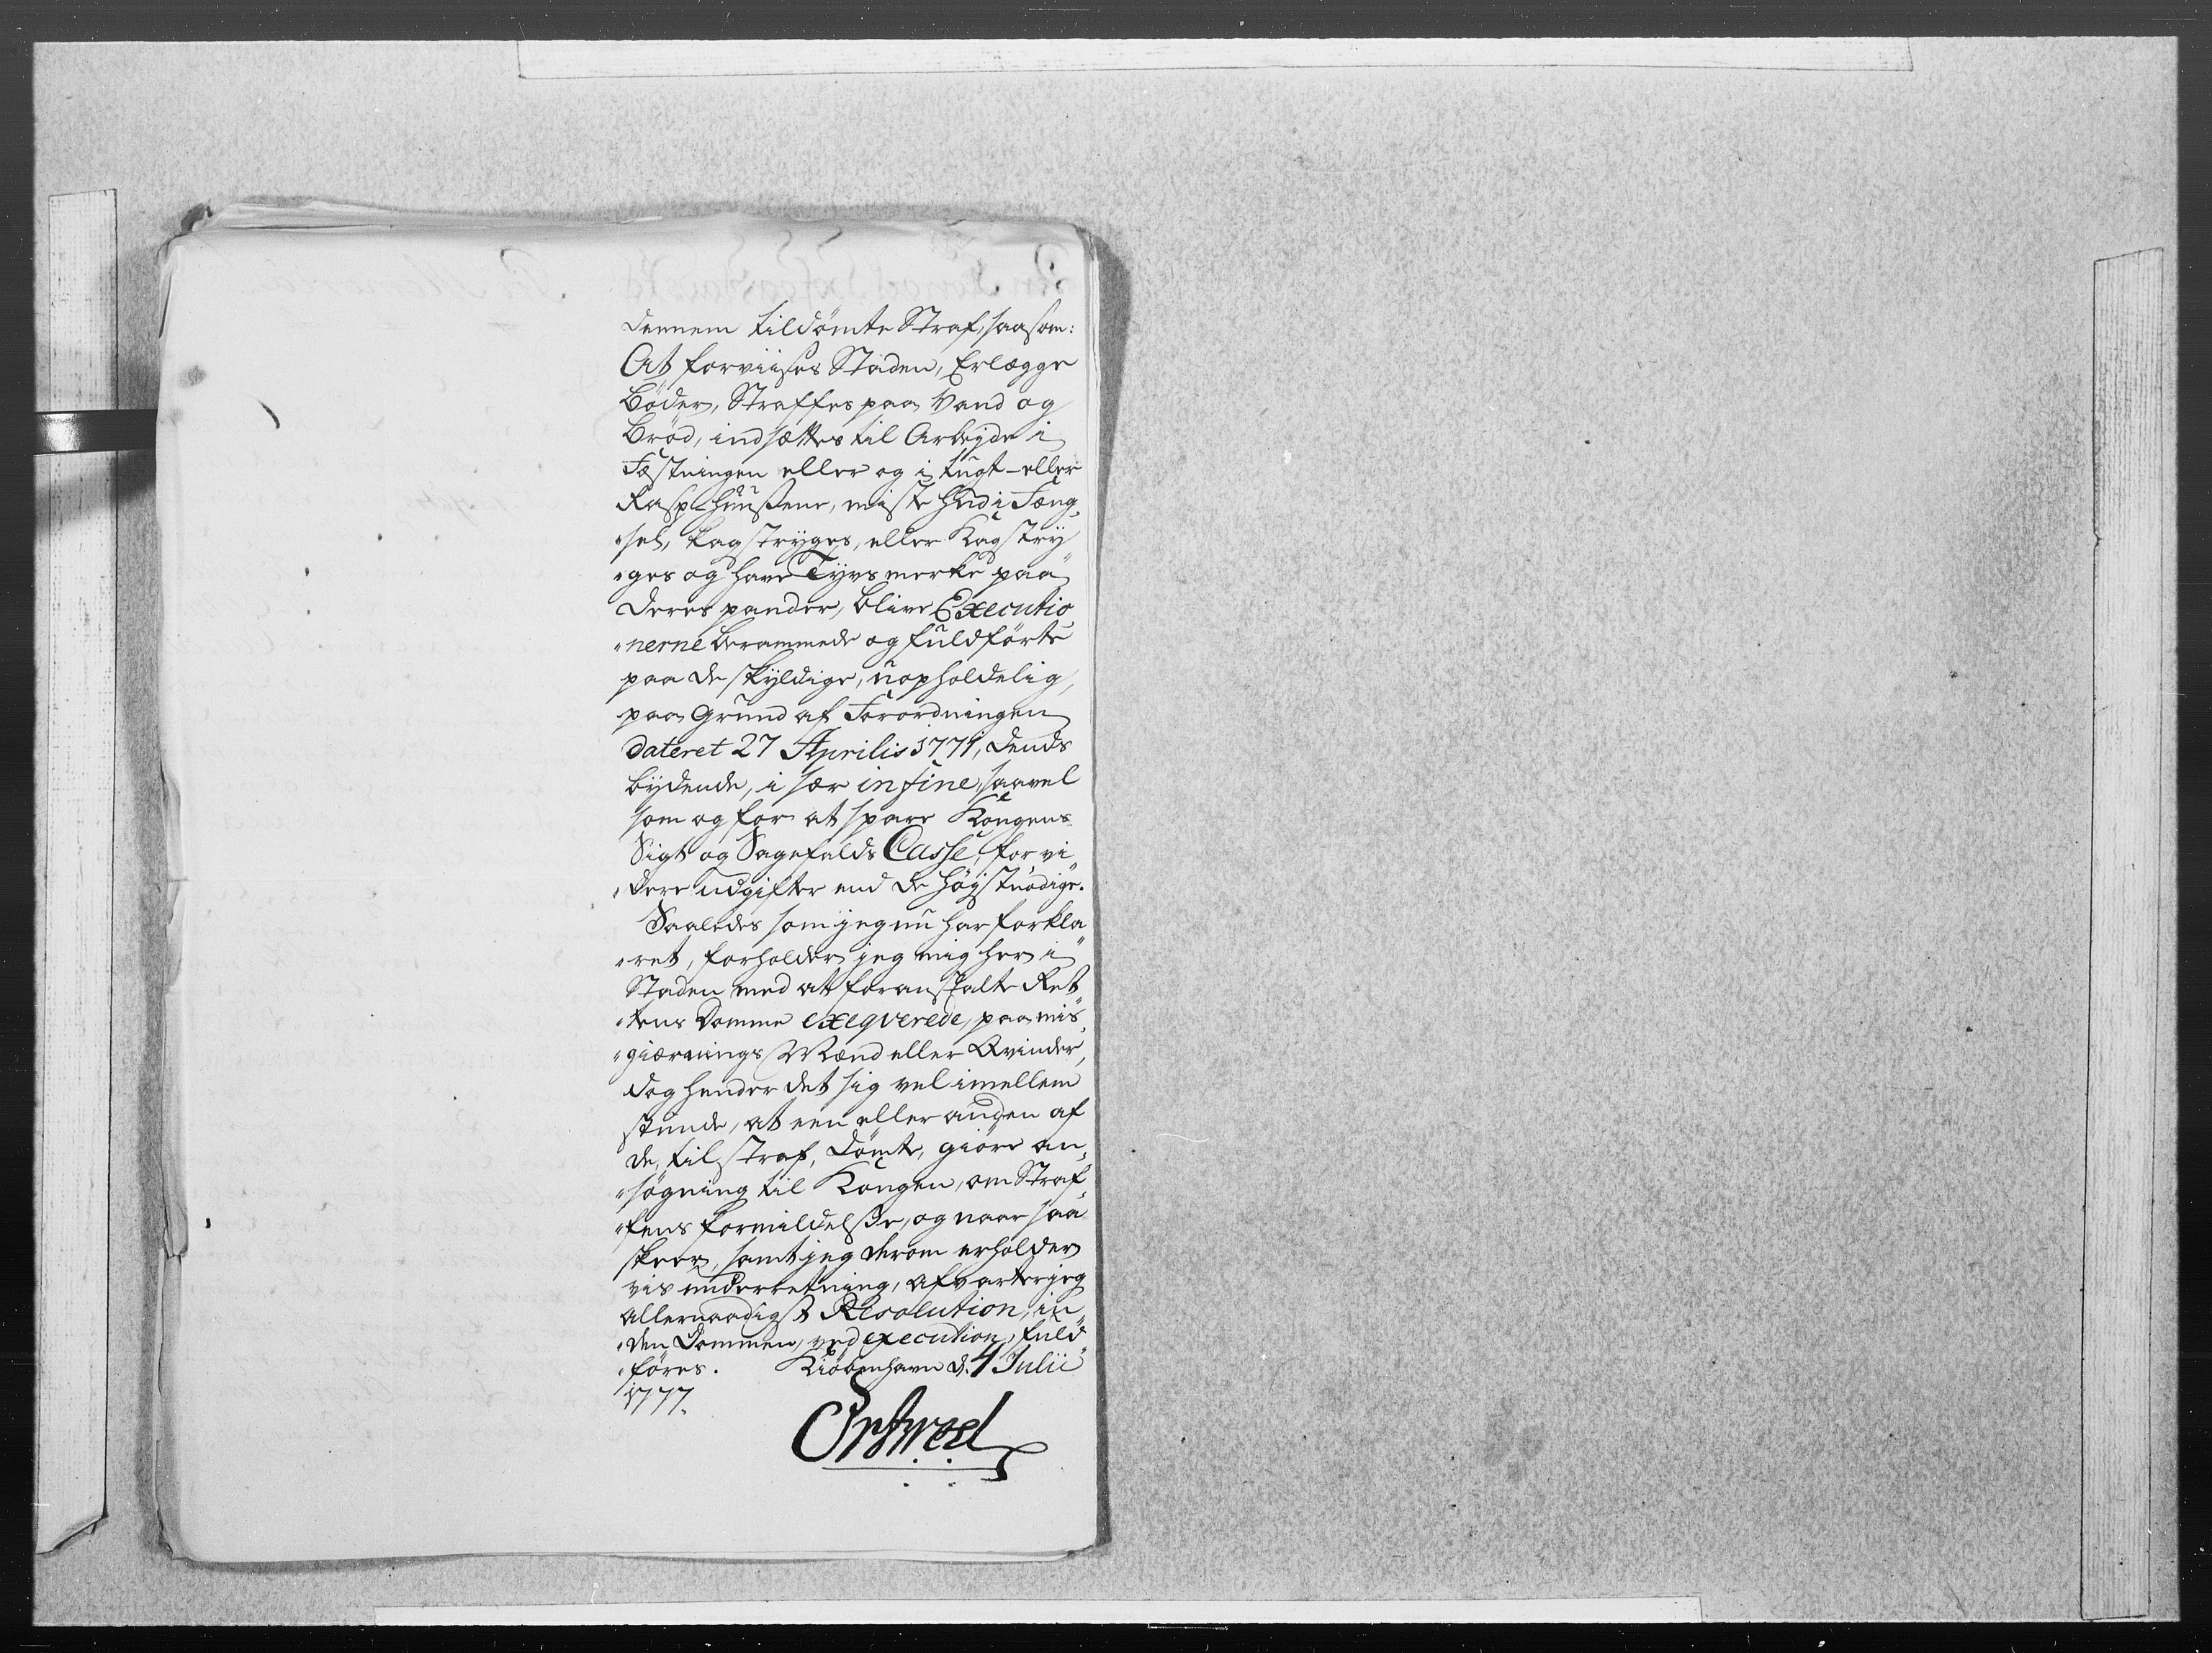 dennem tildömte Straf, saasom:
At forviises Staden, Erlægge
Böder, Straffes paa Vand og
Bröd, indsættes til Arbeyde i
Fæstningen eller og i Tugt- eller
Rasp-Huusene, miste Hud i Fæng„
„sel, Kagstryges, eller Kagstry„
„ges og have Tyvs merke paa
deres pander, blive Executio„
„nerne berammede og fuldförte
paa de skyldige, uopholdelig,
paa Grund af Forordningen
dateret 27 Aprilis 1771, dends
bydende, i sær in fine, saavel
som og for at spare Kongens
Sigt og Sagefalds Casse, for vi„
„dere udgifter end de höystnödige.
Saaledes som jeg nu har forkla„
„ret, forholder jeg mig her i
Staden med at foranstalte Ret„
„tens Domme exeqverede, paa mis„
„giærnings Mænd eller Qvinder,
dog hender det sig vel imellem
stunde, at een eller anden af
de, til straf, dömte, giöre an„
„sögning til Kongen, om Straf„
„fens formildelse, og naar saa
skeer, samt jeg derom erholder
vis underretning, afvarter jeg
allernaadigst Resolution, in„
„den Dommen, ved execution, fuld„
„föres. Kiöbenhavn d. 4 Julii
1777.
Örtwed